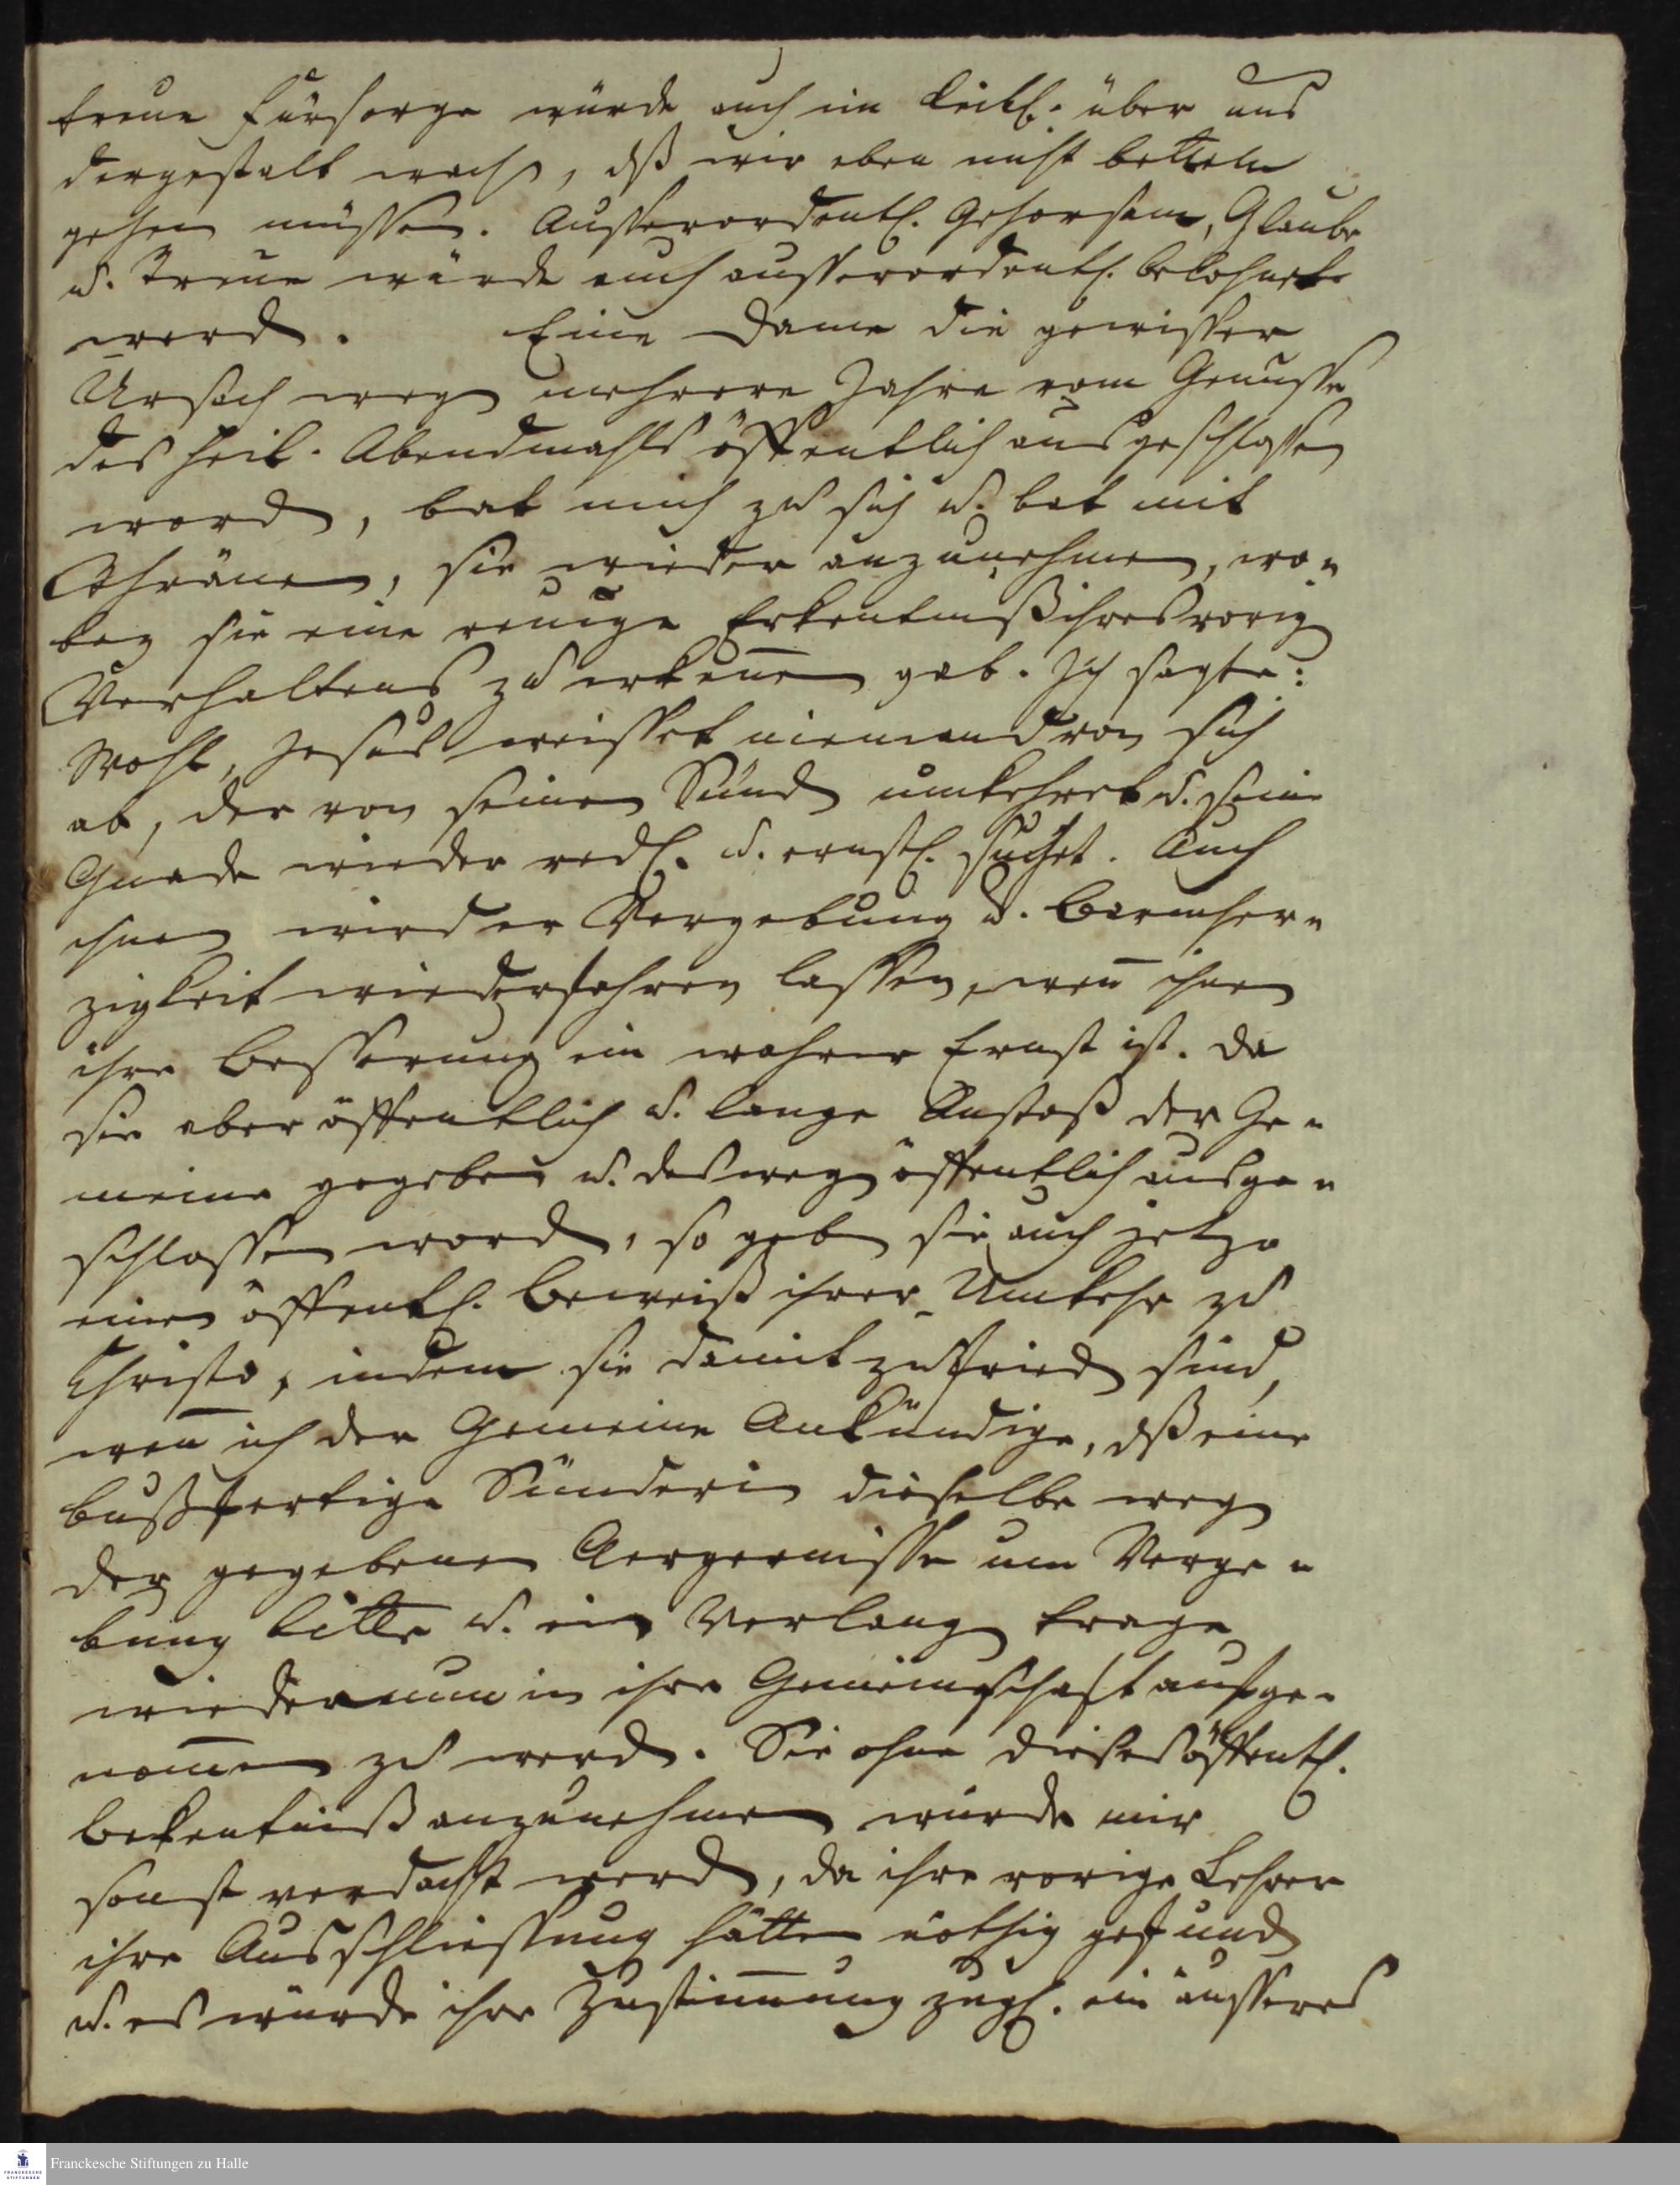 treue Fürsorge würde auch im leibl. über uns
dergestalt wachen, dß wir eben nicht betteln
gehen müssen. Ausserordentl. Gehorsam, Glaube
u. Treue würde auch ausserordentl. belohnet
werden. Eine Dame die gewisser
Ursach wegen mehrere Jahre vom Genusse
des heil. Abendmahls öffentlich ausgeschlossen
worden, bat mich zu sich u. bat mit
Thränen, sie wieder anzunehmen, wo-
bey sie eine reuige Erkentniß ihres vorigen
Verhaltens zu erkennen gab. Ich sagte:
Wohl, Jesus weisset niemand von sich
ab, der von seinen Sünden umkehret u. seine
Gnade wieder redl. u. ernstl. suchet. Auch
ihnen wird er Vergebung u. Barmher-
zigkeit wiederfahren lassen, wenn ihnen
ihre Besserung ein wahrer Ernst ist. Da
sie aber öffentlich u. lange Anstoß der Ge-
meine gegeben u. deswegen öffentlich ausge-
schlossen worden, so geben sie auch jetzo
einen öffentl. Beweiß ihrer Umkehr zu
Christo, indem sie damit zufrieden sind,
wenn ich der Gemeine Ankündige, dß eine
bußfertige Sünderin dieselbe wegen
der gegebenen Aergernisse um Verge-
bung bitte u. ein Verlangen trage
wiederum in ihre Gemeinschaft aufge-
nommen zu werden. Sie ohne dieses öffentl.
Bekentniß anzunehmen würde mir
sonst verdacht werden, da ihre vorige Lehrer
ihre Ausschliessung hätten nöthig gefunden
u. es würde ihre Zustimmung zugl. ein äusseres
Franckesche Stiftungen zu Halle